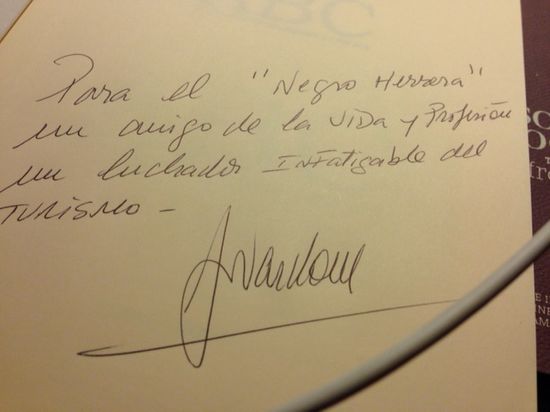 ABC
Para el "Negro Herrera"
un amigo de la vida y Profesión
un luchador INFatigable del
TURISMO -